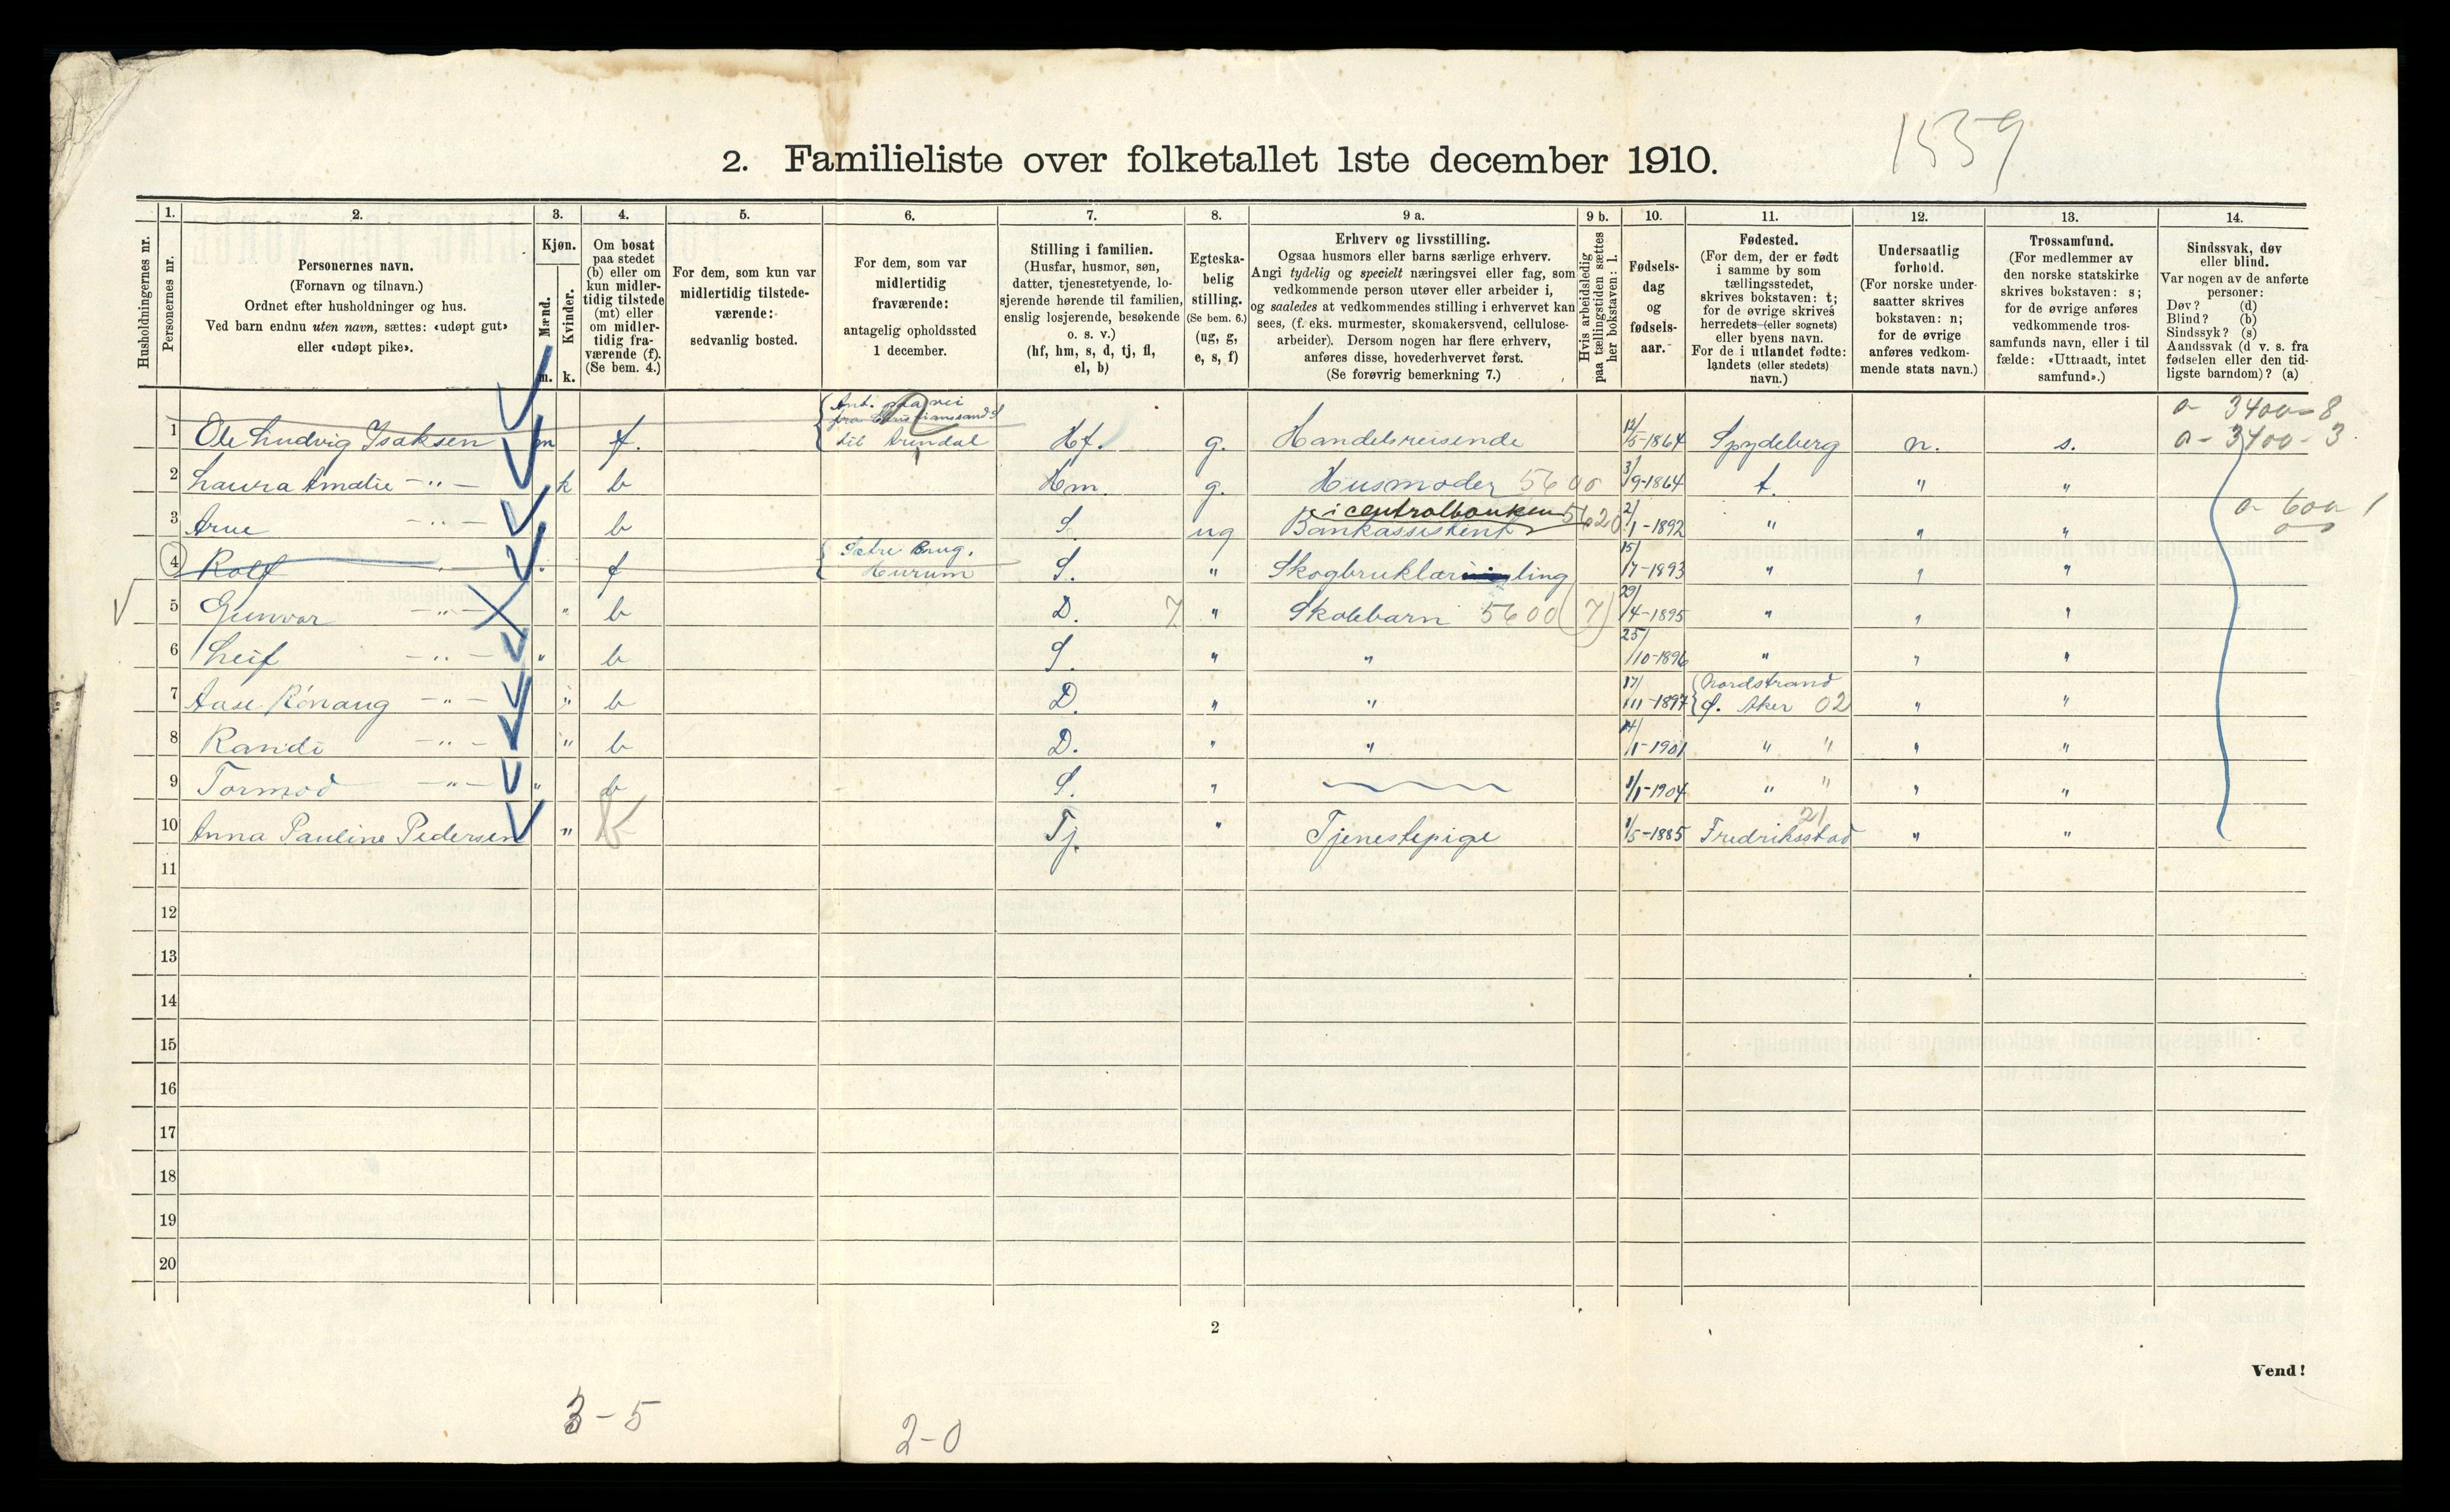 1559
2. Familieliste over folketallet 1ste december 1910.
Husholdningernes nr.
1.
Personernes nr.
2.
Personernes navn.
(Fornavn og tilnavn.)
Ordnet efter husholdninger og hus.
Ved barn endnu uten navn, sættes: «udøpt gut»
eller «udøpt pike».
3.
Kjøn.
Mænd.
Kvinder.
m.
k.
4.
Om bosat
paa stedet
(b) eller om
kun midler-
tidig tilstede
(mt) eller
om midler-
tidig fra-
værende (f).
(Se bem. 4.)
5.
For dem, som kun var
midlertidig tilstede-
værende:
sedvanlig bosted.
6.
For dem, som var
midlertidig
fraværende:
antagelig opholdssted
1 december.
7.
Stilling i familien.
(Husfar, husmor, søn,
datter, tjenestetyende, lo-
sjerende hørende til familien,
enslig losjerende, besøkende
o. s. v.)
(hf, hm, s, d, tj, fl,
el, b)
8.
Egteska-
belig
stilling.
(Se bem. 6.)
(ug, g,
e, s, f)
9 a.
Erhverv og livsstilling.
Ogsaa husmors eller barns særlige erhverv.
Angi tydelig og specielt næringsvei eller fag, som
vedkommende person utøver eller arbeider i,
og saaledes at vedkommendes stilling i erhvervet kan
sees, (f. eks. murmester, skomakersvend, cellulose-
arbeider). Dersom nogen har flere erhverv,
anføres disse, hovederhvervet først.
(Se forøvrig bemerkning 7.)
9 b.
Hvis arbeidsledig
paa tællingstiden sættes
her bokstaven: l.
10.
Fødsels-
dag
og
fødsels-
aar.
11.
Fødested.
(For dem, der er født
i samme by som
tællingsstedet,
skrives bokstaven: t;
for de øvrige skrives
herredets (eller sognets)
eller byens navn.
For de i utlandet fødte:
landets (eller stedets)
navn.)
12.
Undersaatlig
forhold.
(For norske under-
saatter skrives
bokstaven: n;
for de øvrige
anføres vedkom-
mende stats navn.)
13.
Trossamfund.
(For medlemmer av
den norske statskirke
skrives bokstaven: s;
for de øvrige anføres
vedkommende tros-
samfunds navn, eller i til
fælde: «Uttraadt, intet
samfund».)
14.
Sindssvak, døv
eller blind.
Var nogen av de anførte
personer:
Døv? (d)
Blind? (b)
Sindssyk? (s)
Aandssvak (d v. s. fra
fødselen eller den tid-
ligste barndom)? (a)
1 Ole Ludvig Isaksen m f. Ant. paa vei
fra Christianssand S
til Arendal Hf. g. Handelsreisende 12/5-1864 Spydeberg n. s. a- 3400-8
a- 3400-3
2 Laura Amalie -"- k b Hm. g. Husmoder 5600 3/9-1864 t. " "
3 Arne -"- b S. ug Bankassistent i centralbanken 5620 2/1-1892 " " " a- 600 1
4 Rolf " " f Sætre Brug.
Hurum S. " Skogbruklærling 15/7-1893 " " "
5 Gunvor -"- " b D. 7 " Skolebarn 5600 (7) 29/4-1895 " " "
6 Leif -"- " b S. " " 25/10-1896 " " "
7 Aase Rönaug -"- " b D. " " 17/11-1897 Nordstrand
Ø. Aker 02 " "
8 Randi -"- " b D. " " 14/1-1901 " " " "
9 Tormod -"- " b S. " 1/1-1904 " " " "
10 Anna Pauline Pedersen " b Tj. " Tjenestepige 1/5-1885 Fredriksstad 21 " "
11
12
13
14
15
16
17
18
19
20
2
Vend!
3-5
2-0